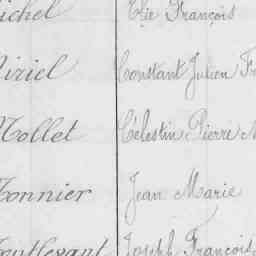 ichel Vie François
iriel Constant Julien Fr
Mollet Célestin Pierre M
Monnier Jean Marie
Joseph François